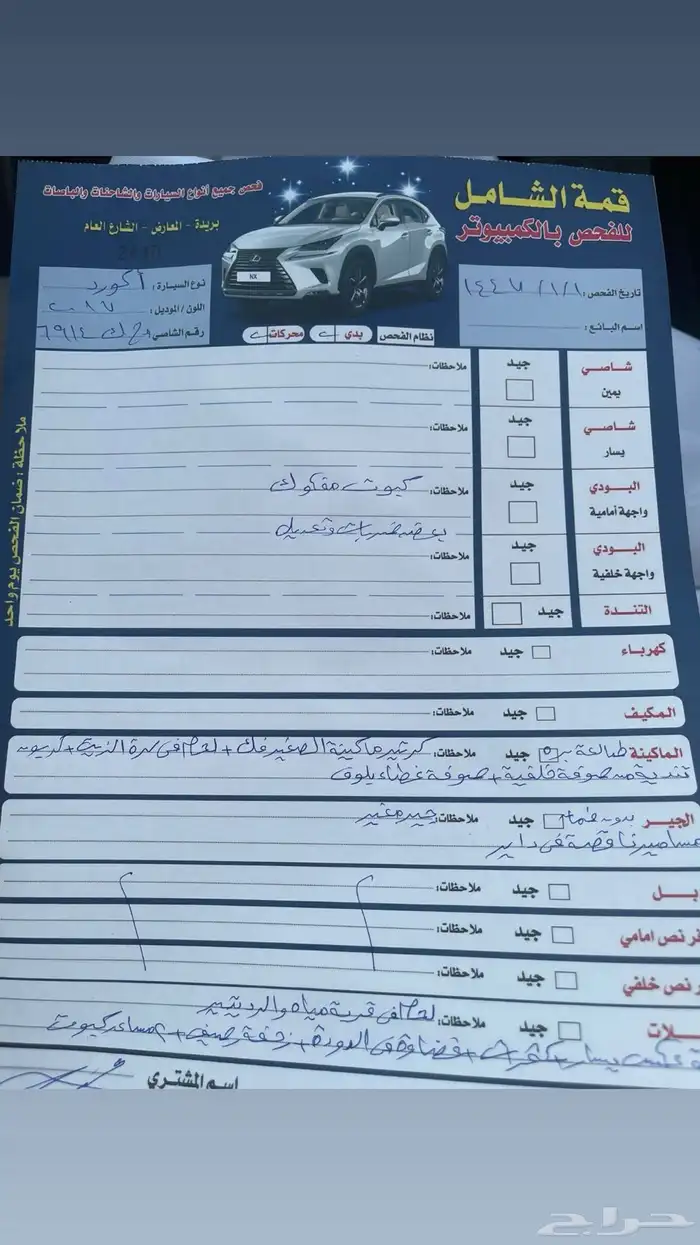 قمة الشامل
للفحص بالكمبيوتر
فحص جميع أنواع السيارات والشاحنات والباصات
بريدة - المعارض - الشارع العام
NX
تاريخ الفحص: ١٤٤٧/١/١
اسم البائع:
نوع السيارة: أكورد
اللون / الموديل: ٢٠١٧
رقم الشاصي: ٦٩١٤
نظام الفحص بدي محركات
ملاحظة: ضمان الفحص يوم واحد
شاصي يمين جيد ملاحظات:
شاصي يسار جيد ملاحظات:
البودي واجهة أمامية جيد ملاحظات: كبوت مفكوك
بعض ضربات وتعديل
البودي واجهة خلفية جيد ملاحظات:
التندة جيد ملاحظات:
كهرباء جيد ملاحظات:
المكيف جيد ملاحظات:
الماكينة جيد ملاحظات: كرتير ماكينة الصغير فك + لحام في
تندية من صوفة خلفية + صوفة غطاء بلوف
الجير بدون ضمان جيد ملاحظات: جير مغير
مسامير ناقصة في داير
جيد ملاحظات:
قرنص امامي جيد ملاحظات:
خلفي جيد ملاحظات:
جيد ملاحظات: لحام في قربة مياه والرديتير
عكس يسار + + + + مساعد كبوت
اسم المشتري
حراج